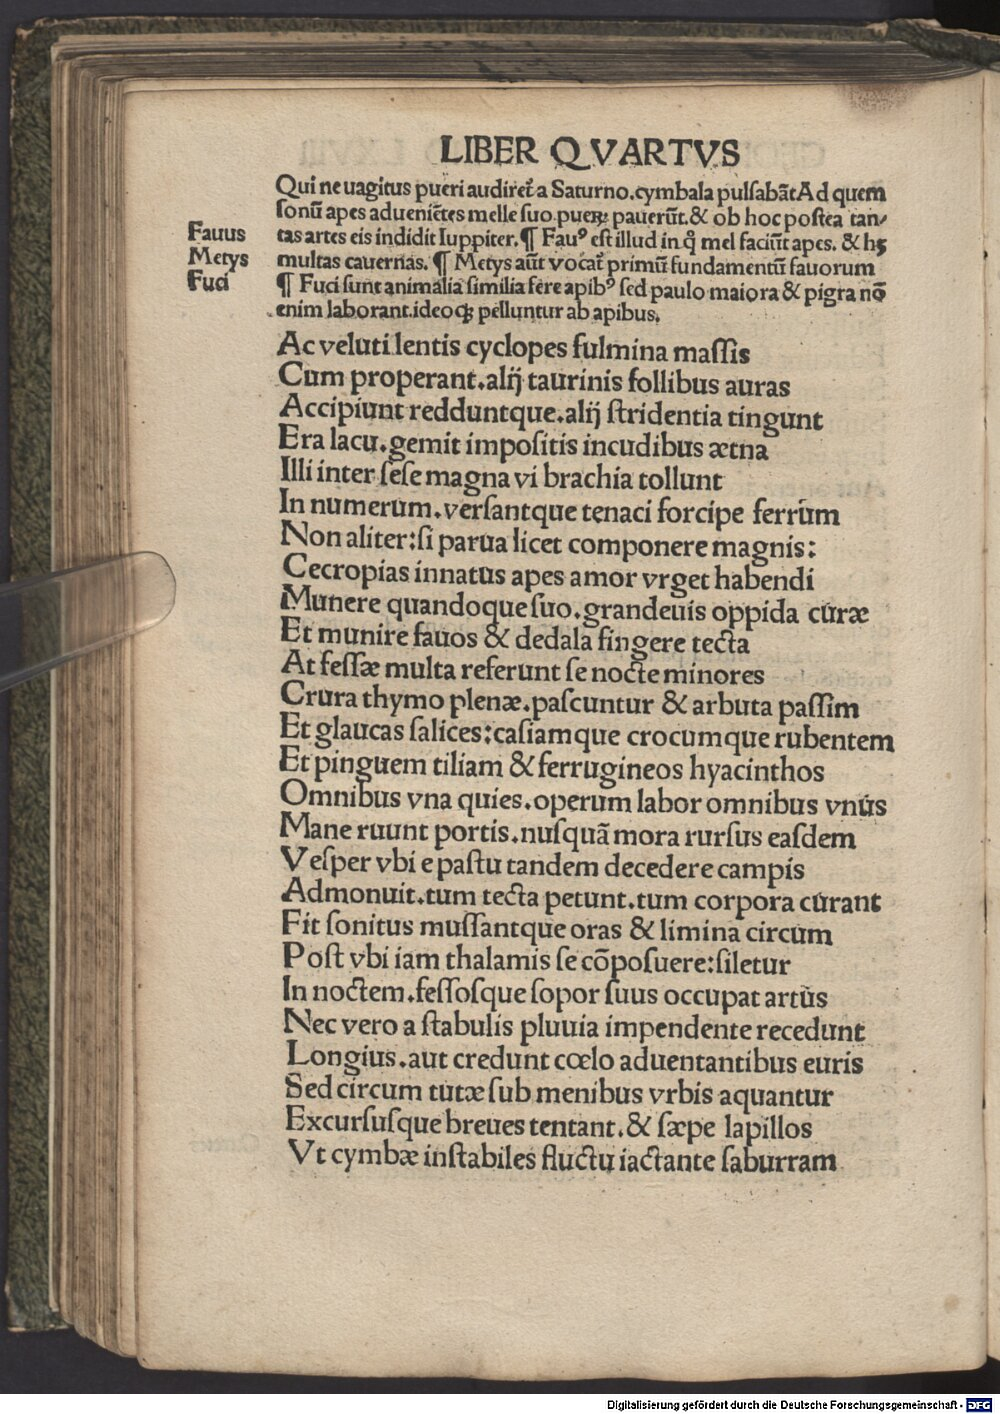 LIBER QVARTVS
Qui ne uagitus pueri audiret᷑ a Saturno.cymbala pulſabãt Ad quem
ſonũ apes adueniẽtes melle ſuo pueꝝ pauerũt.& ob hoc poſtea tan/
Fauus
tas artes eis indidit Iuppiter.¶ Fauꝰ eſt illud in q̊ mel faciũt apes. & hꝫ
Metys
multas cauernas. ¶ Metys aũt vocat᷑ primũ fundamentũ fauorum
Fuci
¶ Fuci ſunt animalia ſimilia fere apibꝰ ſed paulo maiora & pigra nõ
enim laborant.ideoqꝫ pelluntur ab apibus.
Ac veluti lentis cyclopes fulmina maſſis
Cum properant.alij taurinis follibus auras
Accipiunt redduntque.alij ſtridentia tingunt
Era lacu.gemit impoſitis incudibus ætna
Illi inter ſeſe magna vi brachia tollunt
In numerum.verſantque tenaci forcipe ferrum
Non aliter:ſi parua licet componere magnis:
Cecropias innatus apes amor vrget habendi
Munere quandoque ſuo.grandeuis oppida curæ
Et munire fauos & dedala fingere tecta
At feſſæ multa referunt ſe nocte minores
Crura thymo plenæ.paſcuntur & arbuta paſſim
Et glaucas ſalices:caſiamque crocumque rubentem
Et pinguem tiliam & ferrugineos hyacinthos
Omnibus vna quies.operum labor omnibus vnus
Mane ruunt portis.nuſquã mora rurſus eaſdem
Veſper vbi e paſtu tandem decedere campis
Admonuit.tum tecta petunt.tum corpora curant
Fit ſonitus muſſantque oras & limina circum
Poſt vbi iam thalamis ſe cõpoſuere:ſiletur
In noctem.feſſoſque ſopor ſuus occupat artus
Nec vero a ſtabulis pluuia impendente recedunt
Longius.aut credunt cœlo aduentantibus euris
Sed circum tutæ ſub menibus vrbis aquantur
Excurſuſque breues tentant.& ſæpe lapillos
Vt cymbæ inſtabiles fluctu iactante ſaburram
Digitalisierung gefördert durch die Deutsche Forschungsgemeinschaft - DFG